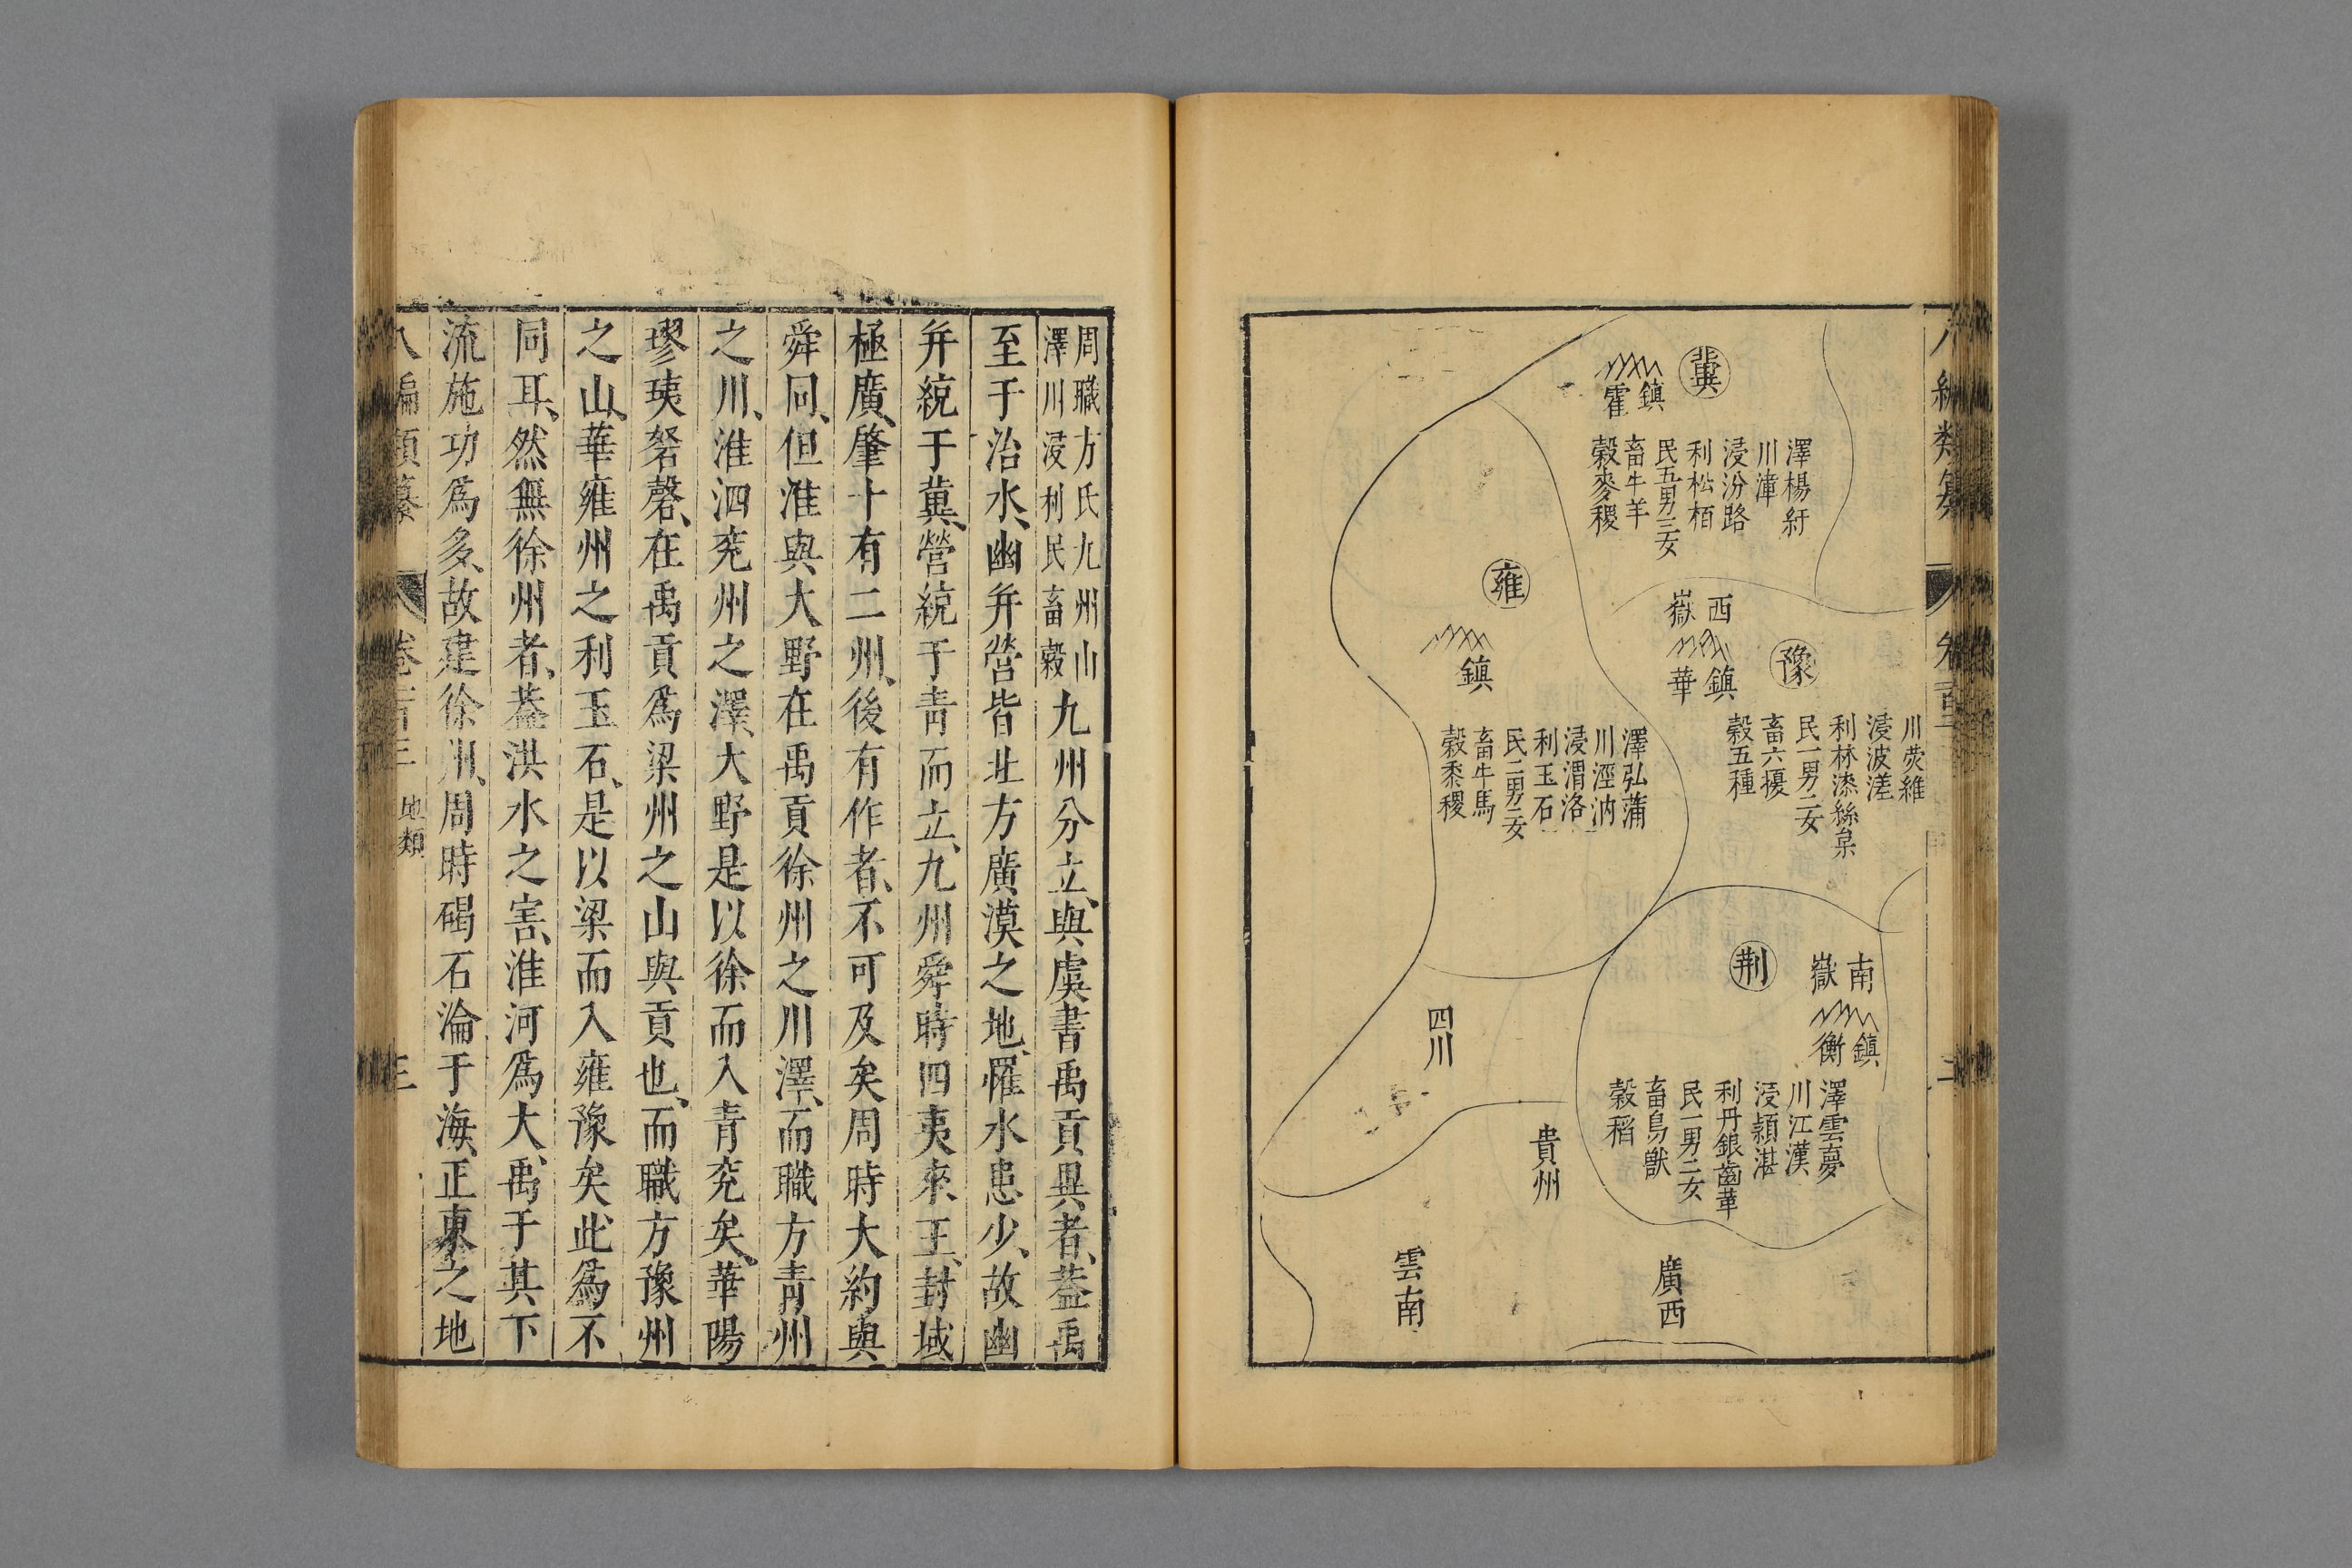 八編類纂
卷百三
二
冀
鎮
霍
澤楊紆
川漳
浸汾路
利松栢
民五男三女
畜牛羊
穀麥稷
豫
西
嶽
鎮
華
川熒維
浸波溠
利林漆絲枲
民二男三女
畜六擾
穀五種
雍
鎮
澤弘蒲
川涇汭
浸渭洛
利玉石
民三男二女
畜牛馬
穀黍稷
荆
南
嶽
鎮
衡
澤雲夢
川江漢
浸潁湛
利丹銀齒革
民一男二女
畜鳥獸
穀稻
四川
貴州
廣西
雲南
周職方氏九州山
澤川浸利民畜穀
九州分立、與虞書禹貢異者、葢禹
至于治水、幽并營皆北方廣漠之地、罹水患少、故幽
并統于冀、營統于青而立、九州舜時四夷來王、封域
極廣、肇十有二州、後有作者、不可及矣周時大約與
舜同、但淮與大野在禹貢徐州之川澤、而職方青州
之川、淮泗兖州之澤、大野是以徐而入青兖矣、華陽
璆琠砮磬、在禹貢爲梁州之山與貢也、而職方豫州
之山、華雍州之利玉石、是以梁而入雍豫矣、此爲不
同耳、然無徐州者、葢洪水之害、淮河爲大、禹于其下
流施功爲多、故建徐州、周時碣石淪于海、正東之地
八編類纂
卷百三
地類
三